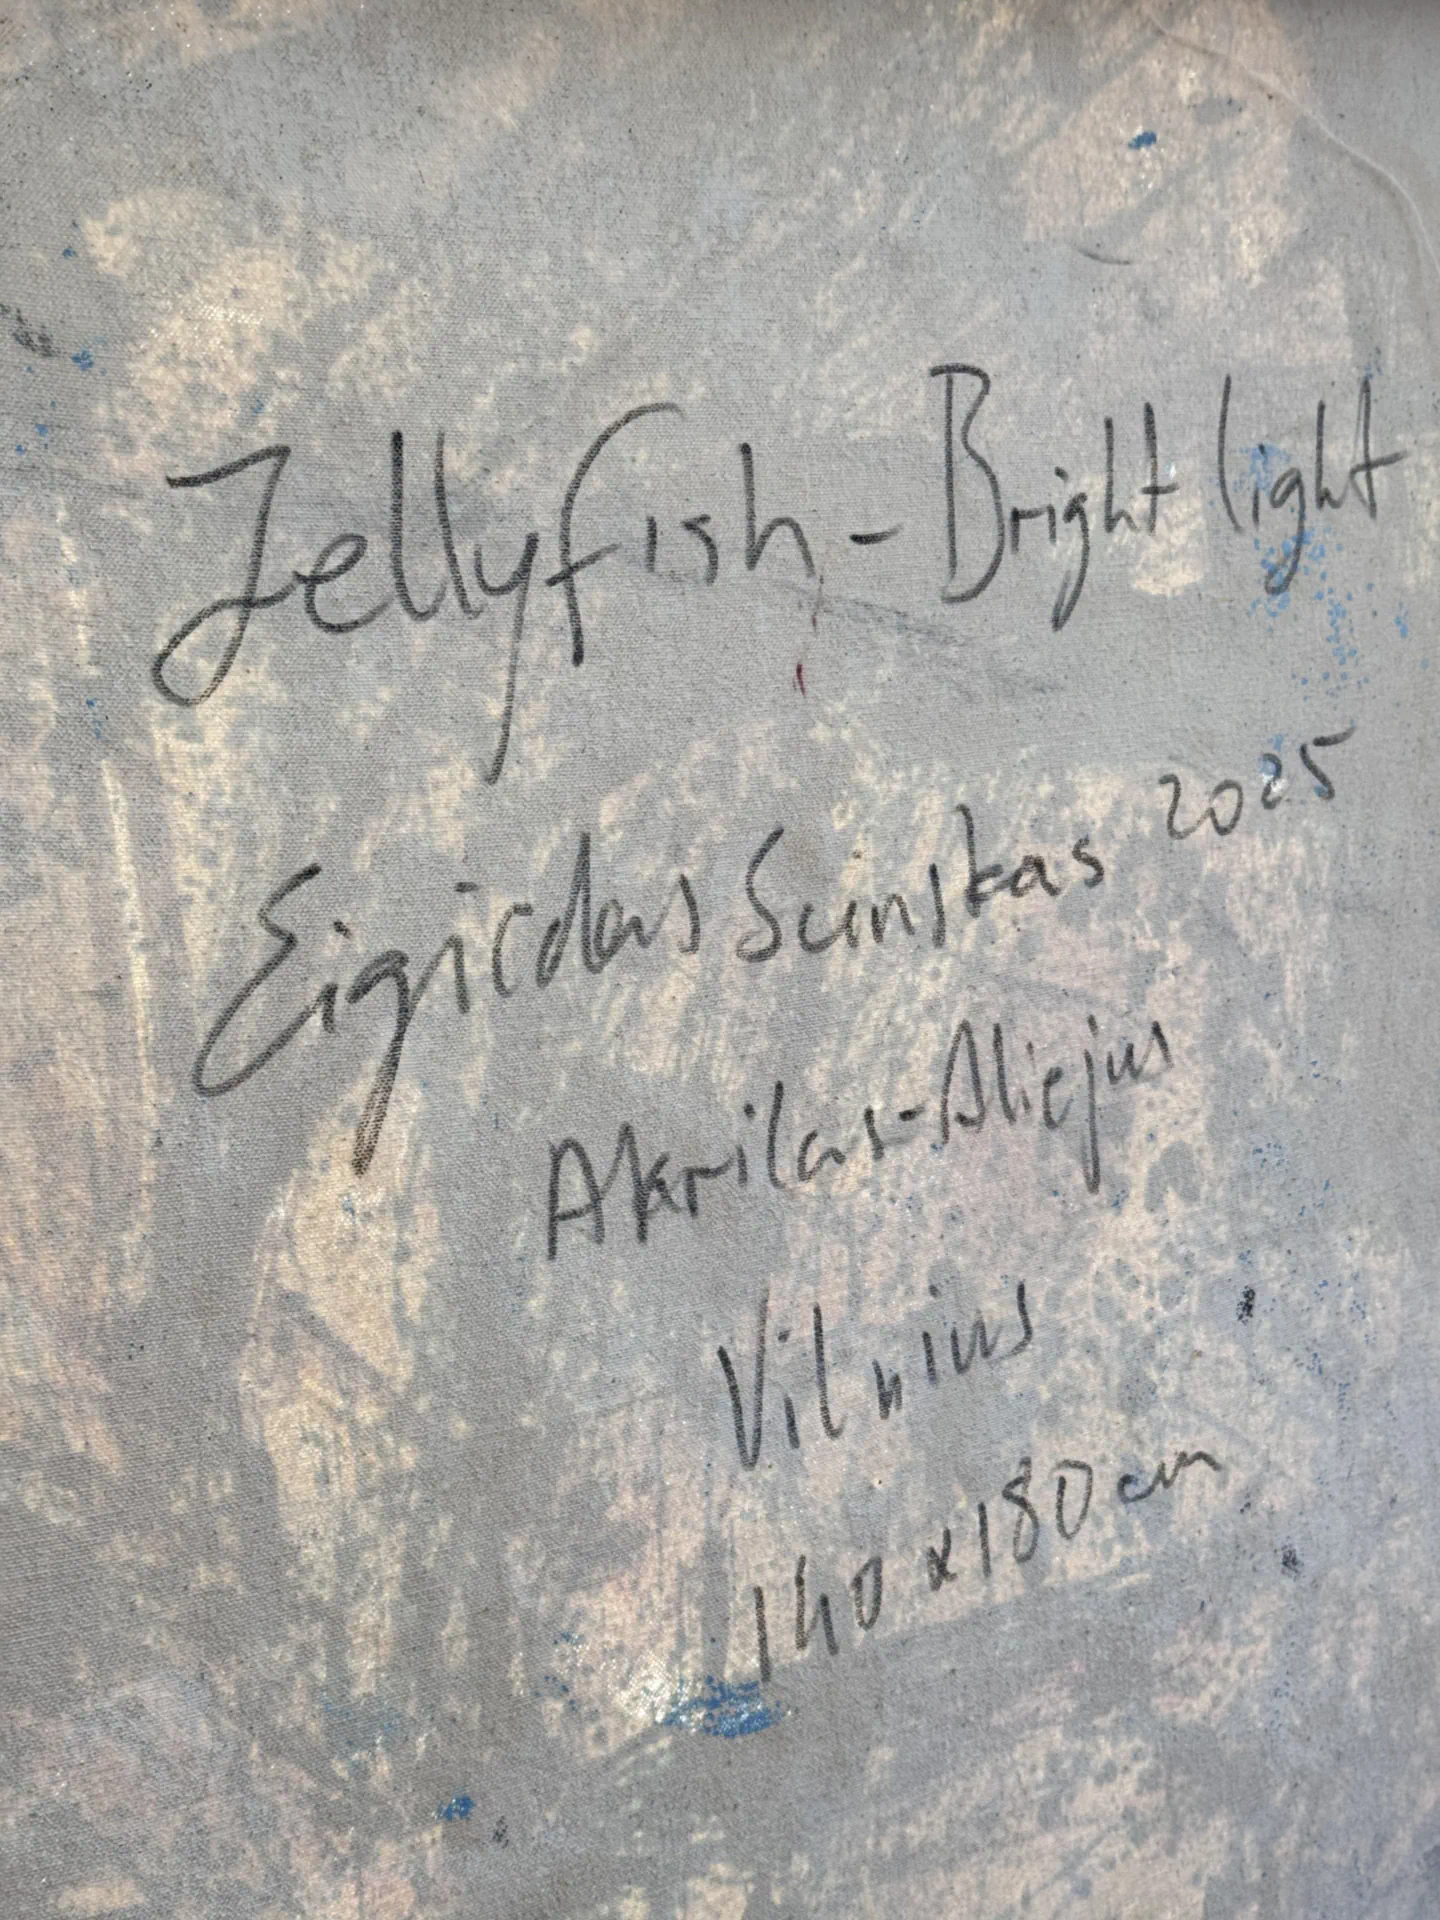 Jellyfish - Bright light
Eigirdas Scinskas 2025
Akrilas-Aliejus
Vilnius
140 x 180 cm